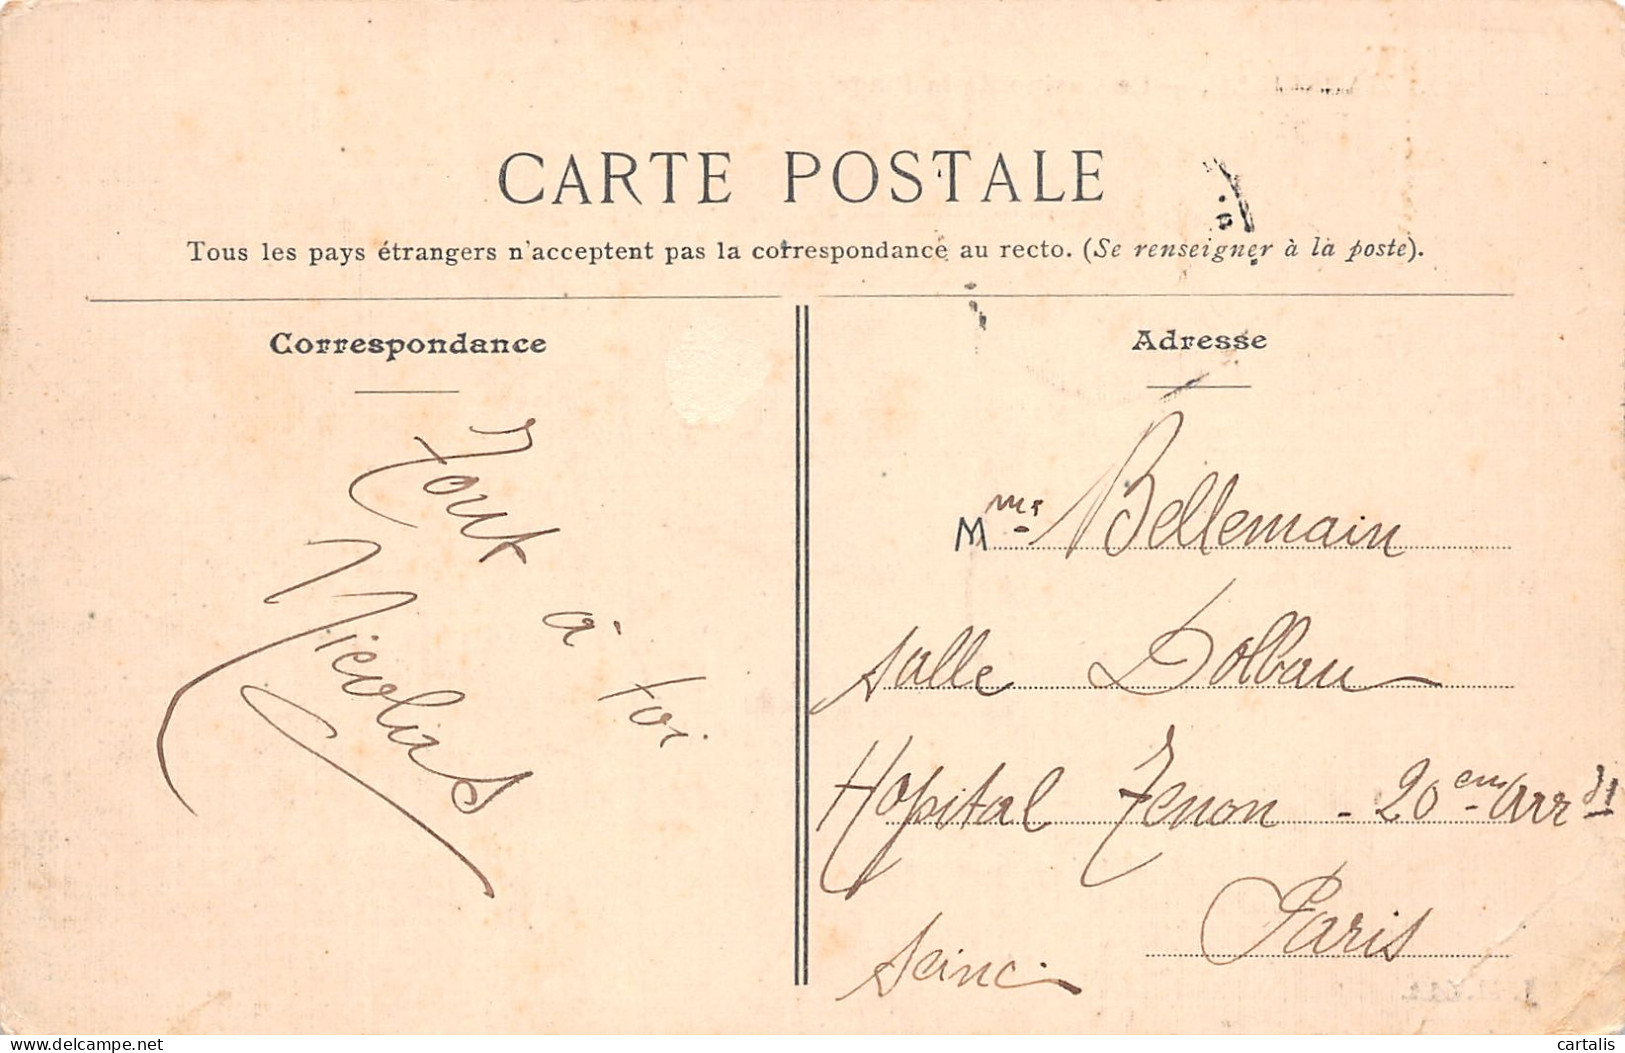 CARTE POSTALE
Tous les pays étrangers n'acceptent pas la correspondance au recto. (Se renseigner à la poste).
Correspondance
Tout à toi
Nicolas
Adresse
Mme Bellemain
Salle Dolbau
Hopital Tenon - 20em Arrdt
Paris
Seine.
delcampe.net
cartalis